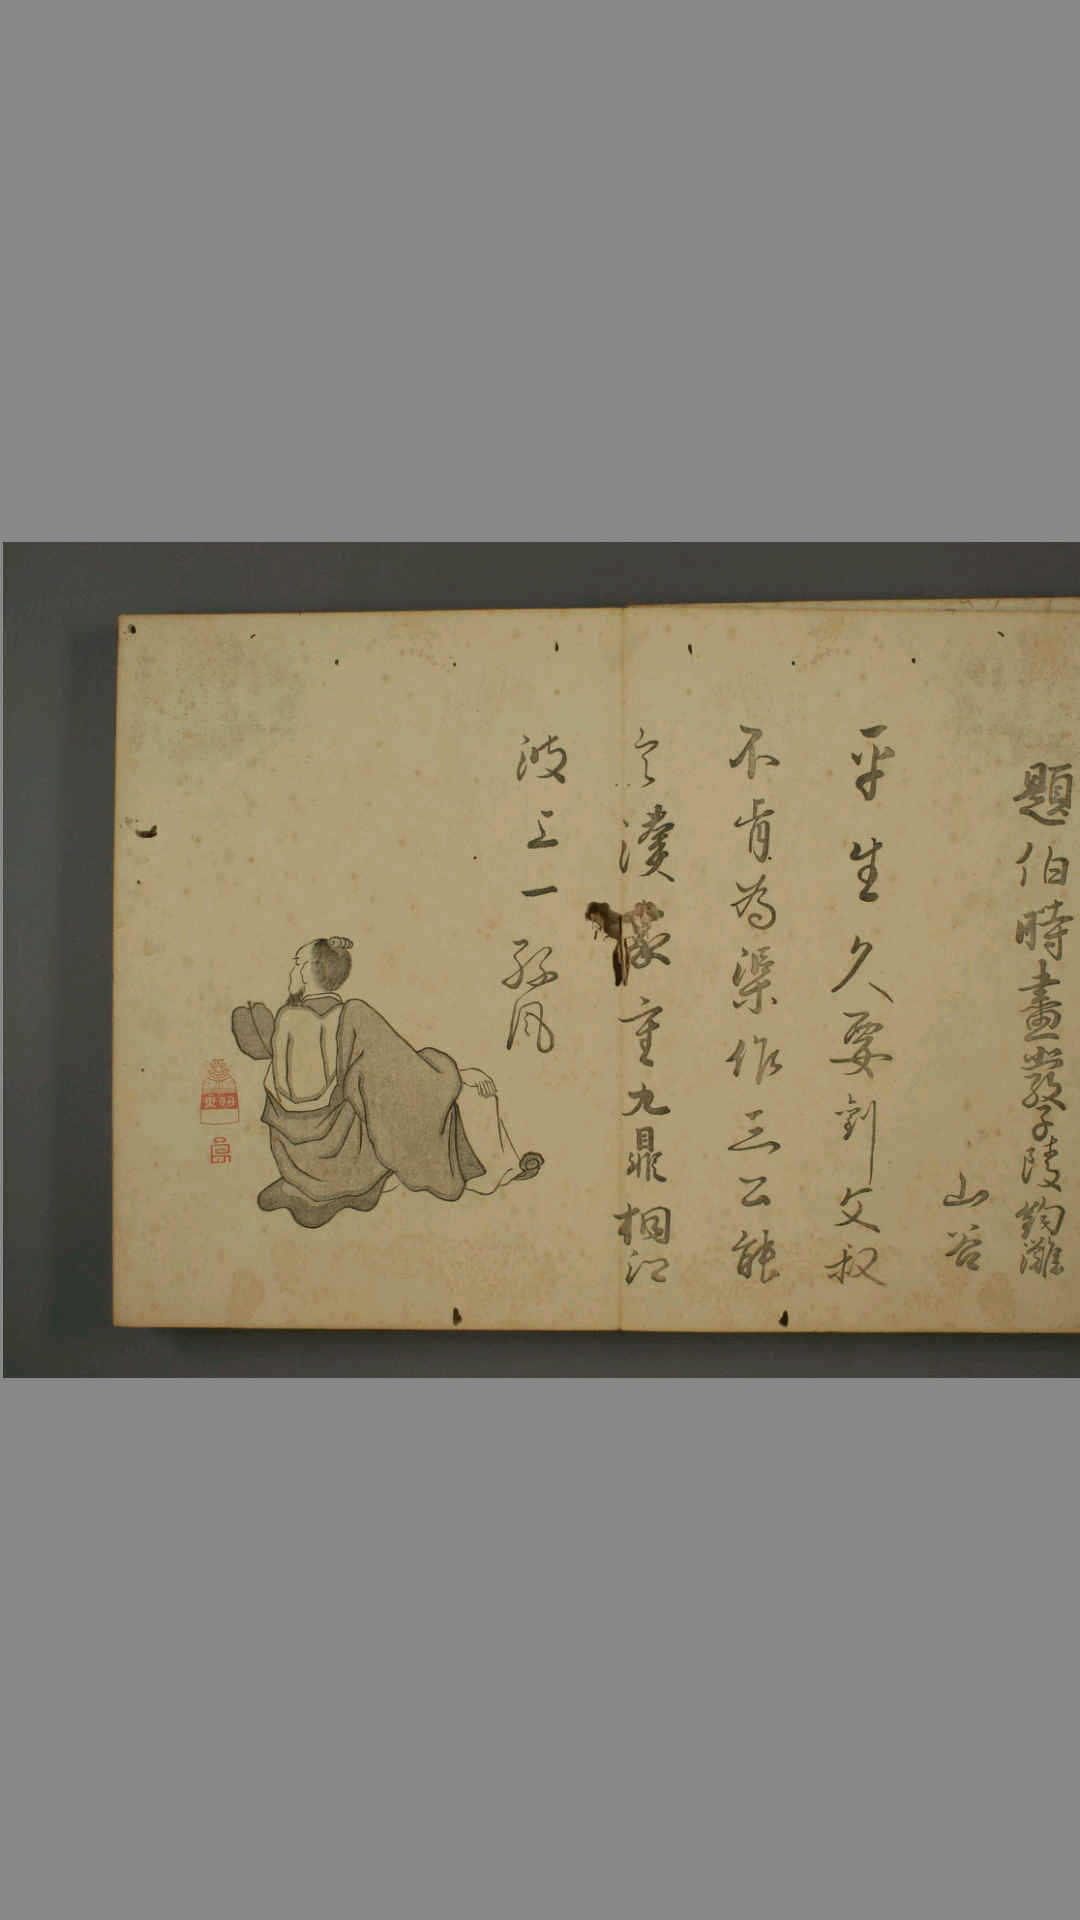 題伯時畫嚴子陵釣灘
山谷
平生久要劉文叔
不肯為渠作三公能
令漢家重九鼎桐江
波上一絲風